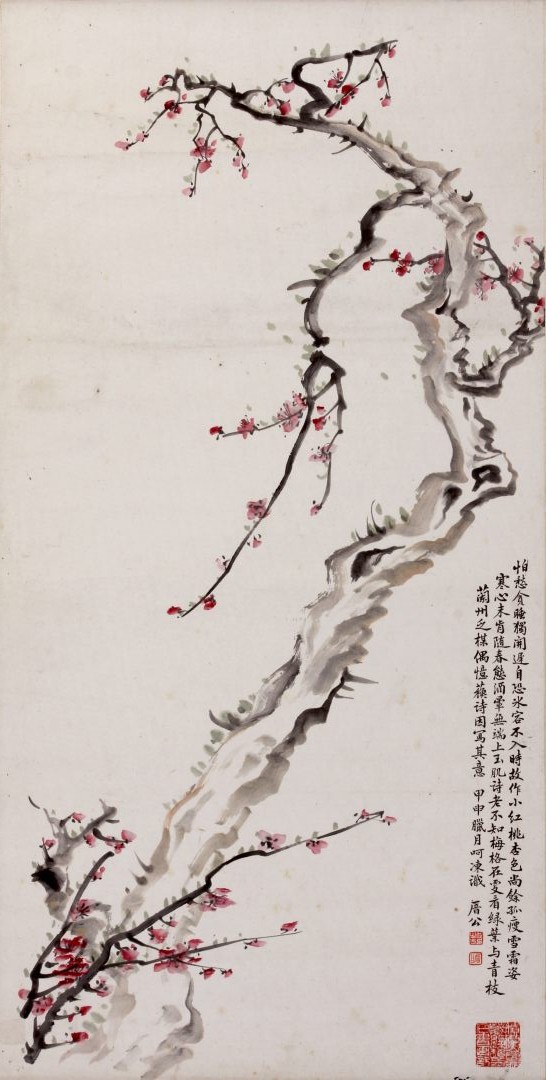 怕愁貪睡獨開遲自恐冰容不入時故作小紅桃杏色尚餘孤瘦雪霜姿
寒心未肯隨春態酒暈無端上玉肌诗老不知梅格在更看绿葉与青枝
蘭州乏楳偶憶蘇诗因写其意 甲申臘月呵凍識 厝公